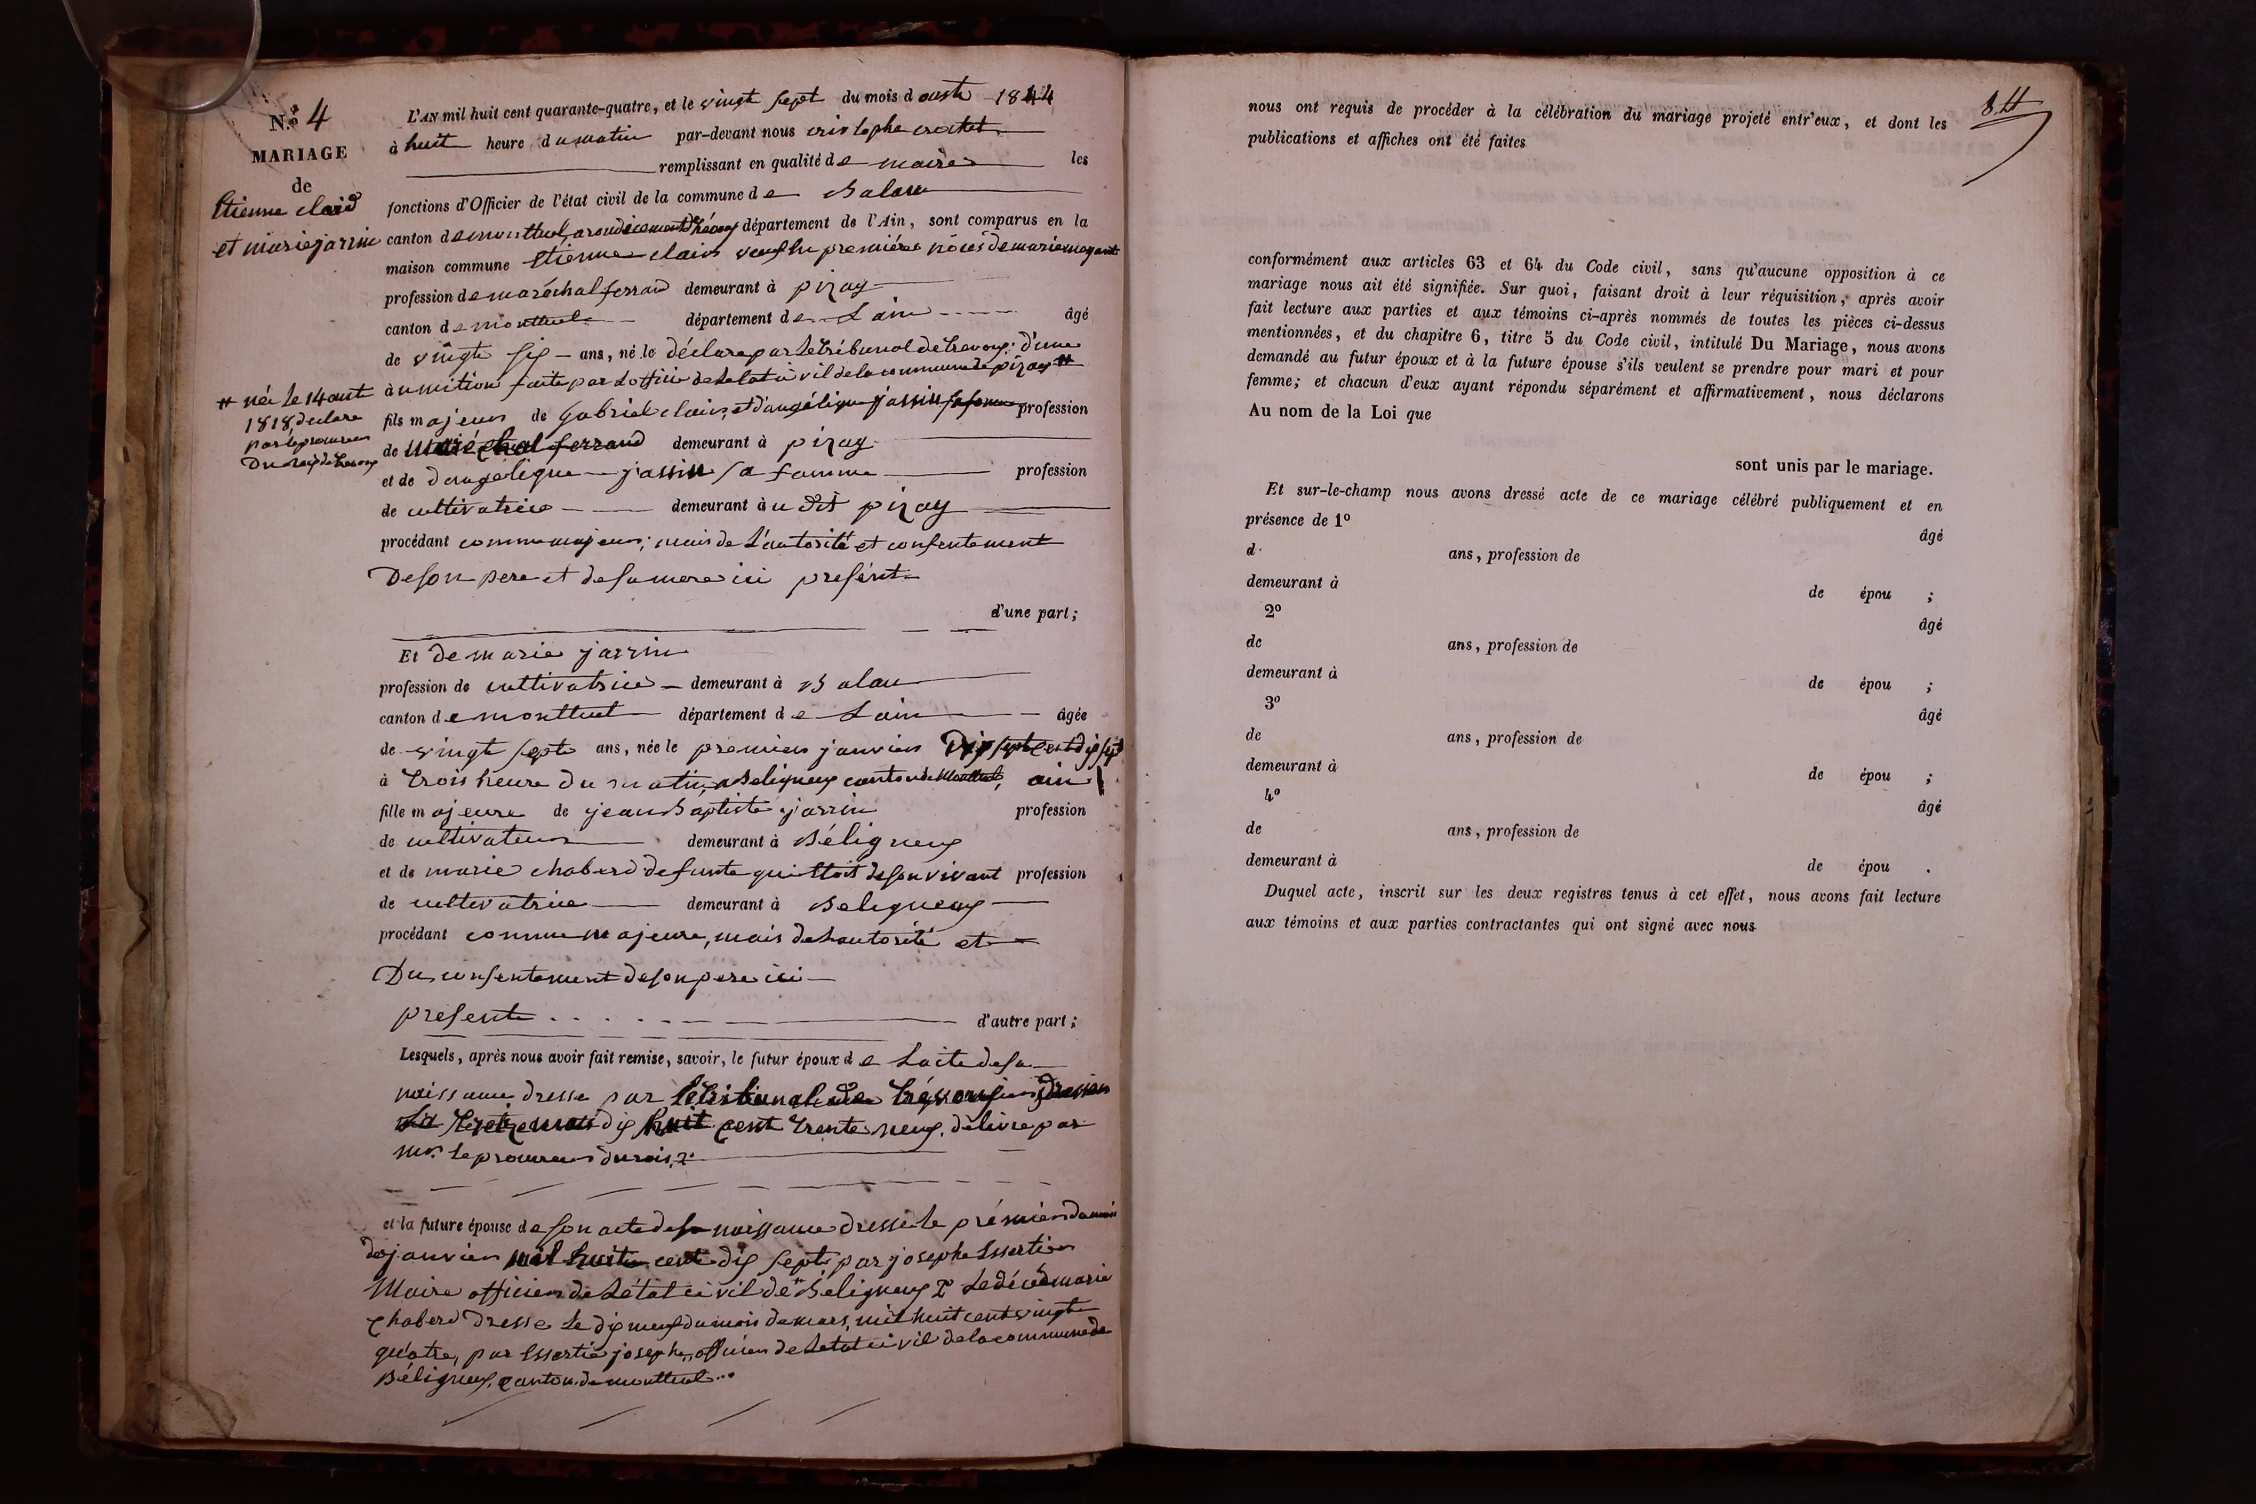 N.º 4
MARIAGE
de
Etienne claid
et marie jarrin
# née le 14 aut
1818 declare
par le procureur
Du roi de trevoux
L'AN mil huit cent quarante-quatre, et le vingt sept du mois d'auste 1844
à huit heure du matin par-devant nous cristophe crochet
remplissant en qualité de maire les
fonctions d'Officier de l'état civil de la commune de Balan
canton de montluel, arondicement trévoux département de l'Ain, sont comparus en la
maison commune Etienne clair veuf en premières nôces de marie
profession de maréchal ferrand demeurant à pizay
canton de montluel département de L'ain âgé
de vingt six ans, né le déclare par le tribunal de trevoux: d'une
faite par L'officie de Letat civil de la commune de pizay #
fils majeur de Gabriel clair, et d'angélique jassin sa femme profession
de maréchal ferrand demeurant à pizay
et de d'angélique jassin sa famme profession
de cultivatrice demeurant au dit pizay
procédant comme majeur; mais de L'autorité et consentement
De son pere et de sa mere ici présent
d'une part;
Et de marie jarrin
profession de cultivatrice demeurant à Balan
canton de montluel département de Lain âgée
de vingt sept ans, née le premier janvier Dix sept cent dix sept
à trois heure du matin a Beligneux canton de Montluel, ain
fille majeure de jean Baptiste jarrin profession
de cultivateur demeurant à Béligneux
et de marie chaberd defunte qui Etoit de son vivant profession
de cultivatrice demeurant à Beligneux
procédant comme majeure, mais de Lautorité et
Du consentement de son pere ici
present d'autre part;
Lesquels, après nous avoir fait remise, savoir, le futur époux de Lacte de sa
naissance dresse par Le tribunal de trévoux
dix huit cent trente neuf. delivre par
mr. le procureur du roi, 2º
et la future épouse de son acte de naissance dresse le prémier du mois
de janvier mil huit cent dix sept par josephe Essertier
Maire officier de Létat civil de Béligneux 2º Le décé de marie
chaberd dresse le dix neuf du mois de mars, mil huit cent vingt
quatre, par Essertie josephe, officier de Letat civil de la commune de
Béligneux, canton de montluel...
8 #
nous ont requis de procéder à la célébration du mariage projeté entr'eux, et dont les
publications et affiches ont été faites
conformément aux articles 63 et 64 du Code civil, sans qu'aucune opposition à ce
mariage nous ait été signifiée. Sur quoi, faisant droit à leur réquisition, après avoir
fait lecture aux parties et aux témoins ci-après nommés de toutes les pièces ci-dessus
mentionnées, et du chapitre 6, titre 5 du Code civil, intitulé Du Mariage, nous avons
demandé au futur époux et à la future épouse s'ils veulent se prendre pour mari et pour
femme; et chacun d'eux ayant répondu séparément et affirmativement, nous déclarons
Au nom de la Loi que
sont unis par le mariage.
Et sur-le-champ nous avons dressé acte de ce mariage célébré publiquement et en
présence de 1º
âgé
d ans, profession de
demeurant à de épou ;
2º âgé
de ans, profession de
demeurant à de épou ;
3º âgé
de ans, profession de
demeurant à de épou ;
4º âgé
de ans, profession de
demeurant à de épou .
Duquel acte, inscrit sur les deux registres tenus à cet effet, nous avons fait lecture
aux témoins et aux parties contractantes qui ont signé avec nous